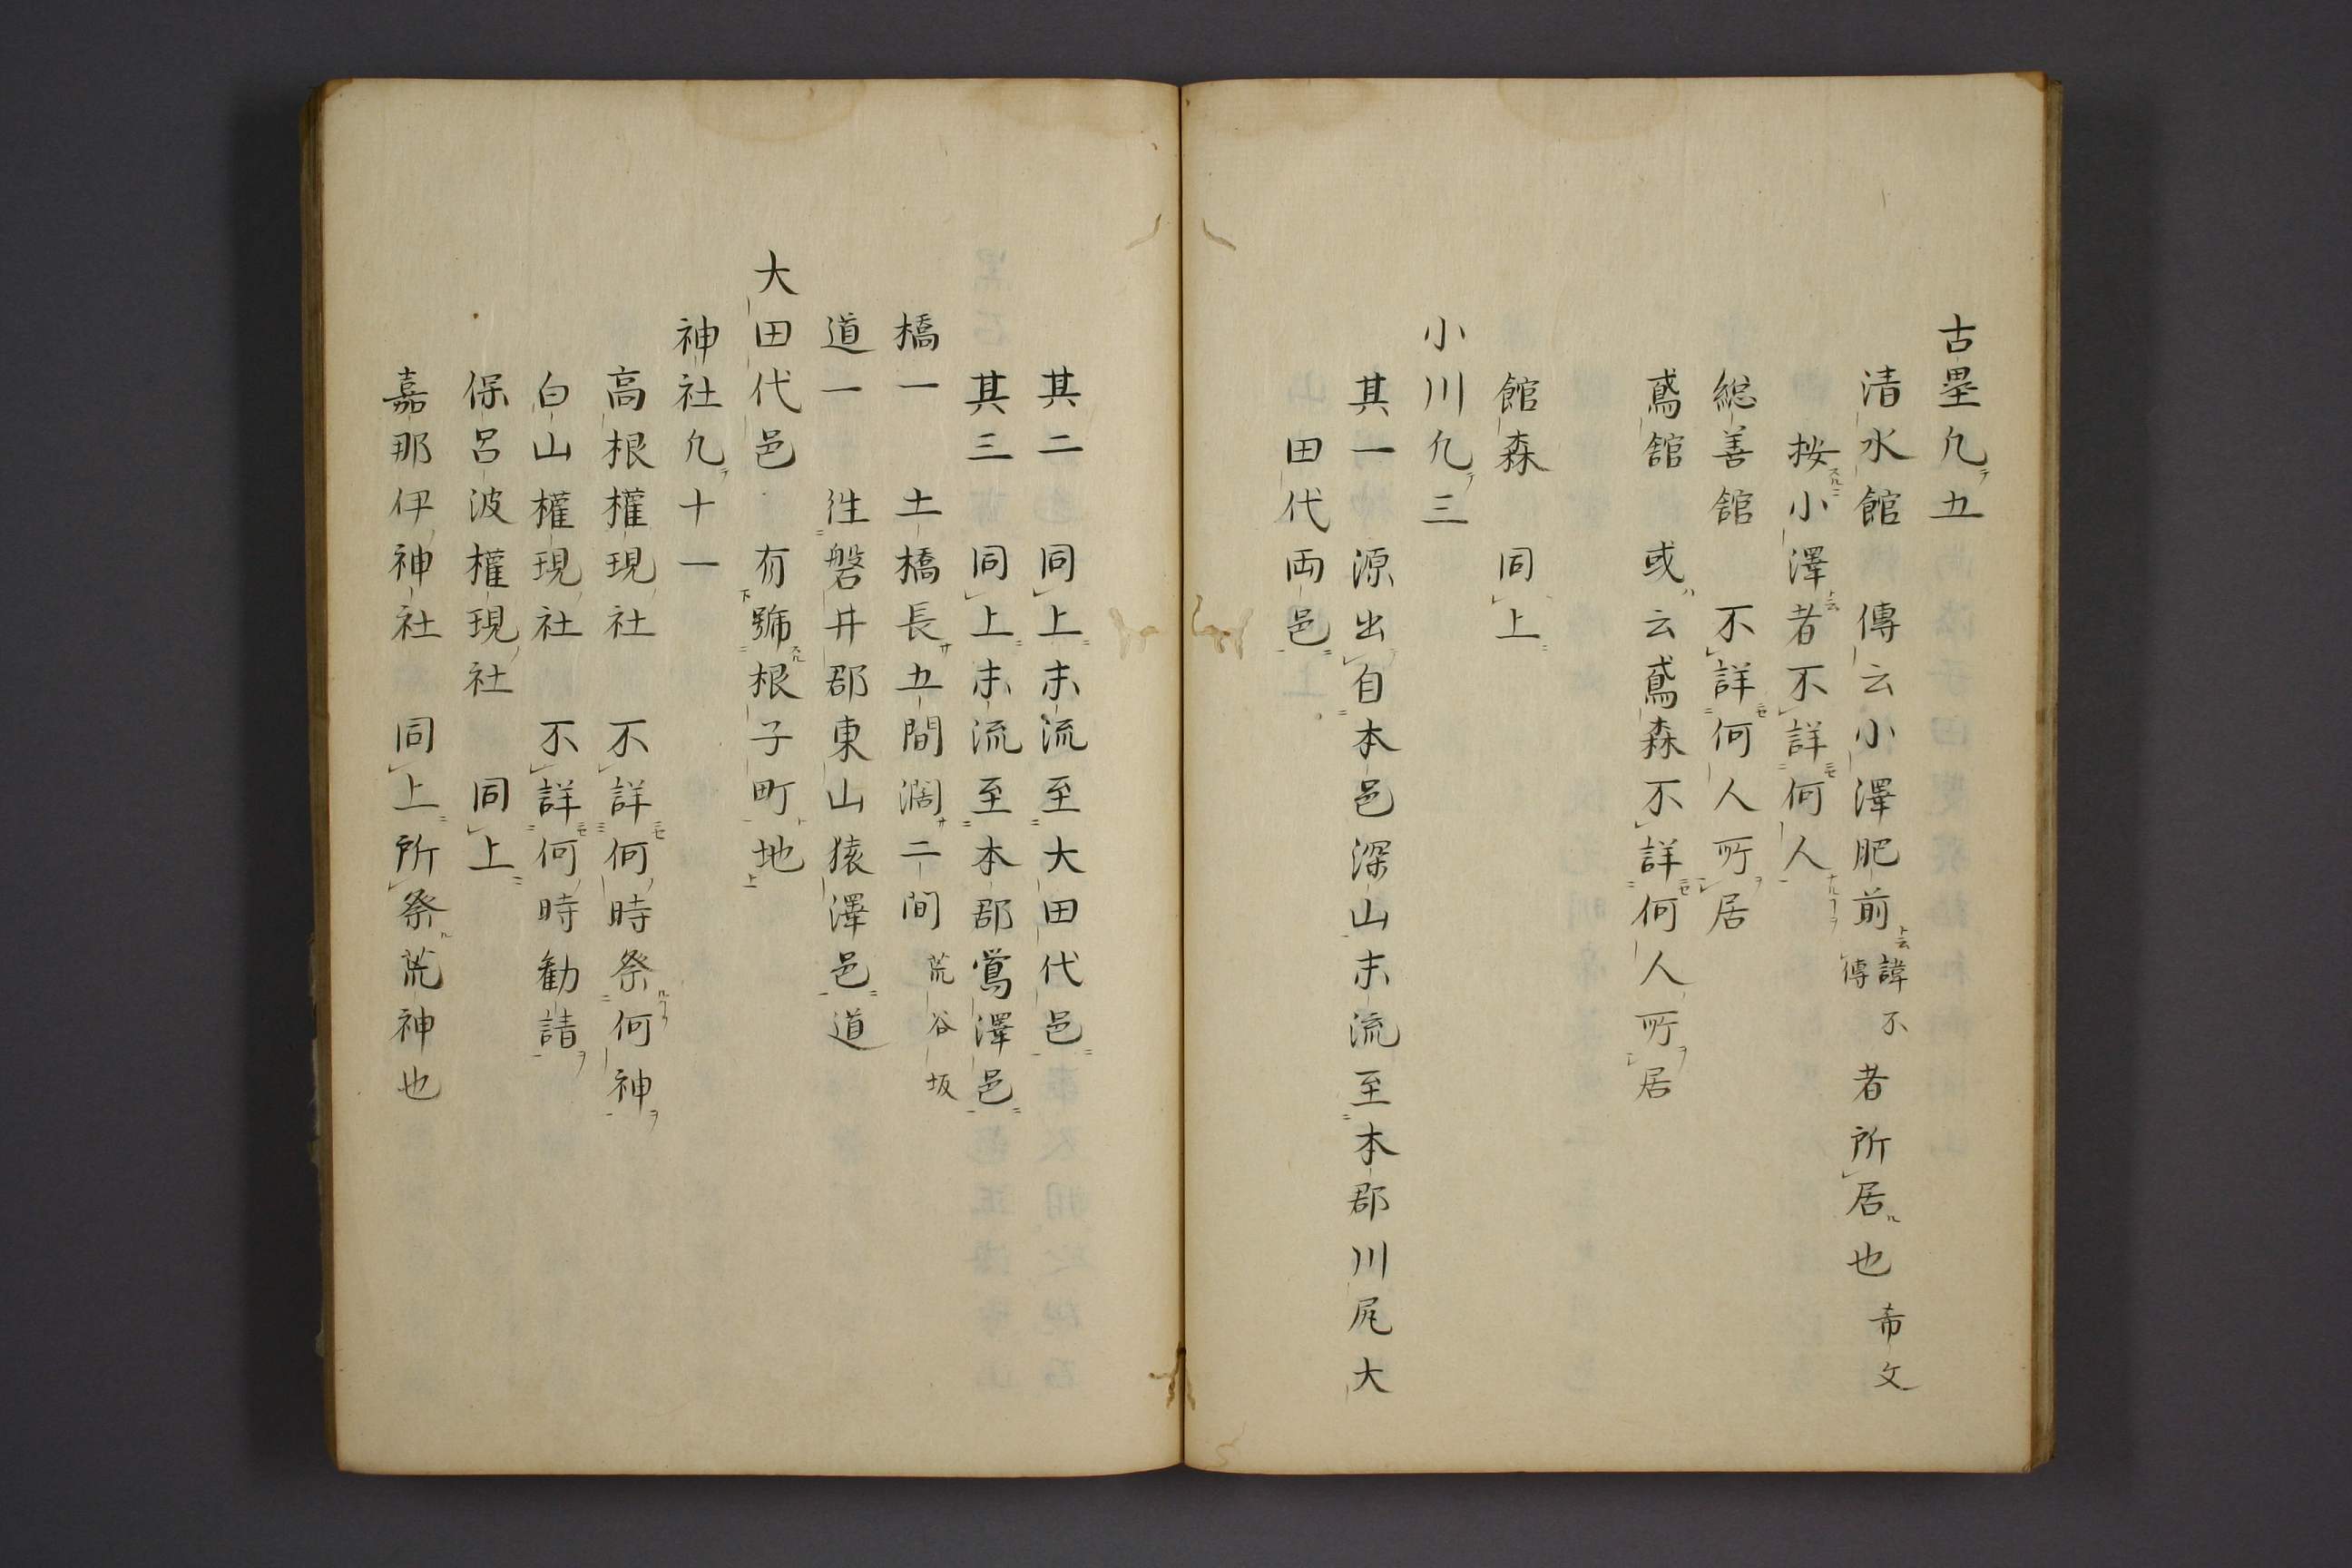 古壘凢五
清水館 傳云小澤肥前諱不傳者所居也 希文
按小澤者不詳何人
総善舘 不詳何人所居
鳶舘 或云鳶森不詳何人所居
館森 同上
小川凢三
其一 源出自本邑深山末流至本郡川尻大
田代両邑
其二 同上末流至大田代邑
其三 同上末流至本郡鴬澤邑
橋一 土橋長五間濶二間 荒谷坂
道一 徃磐井郡東山猿澤邑道
大田代邑 有號根子町地
神社凢十一
高根權現社 不詳何時祭何神
白山權現社 不詳何時勧請
保呂波權現社 同上
嘉那伊神社 同上所祭荒神也